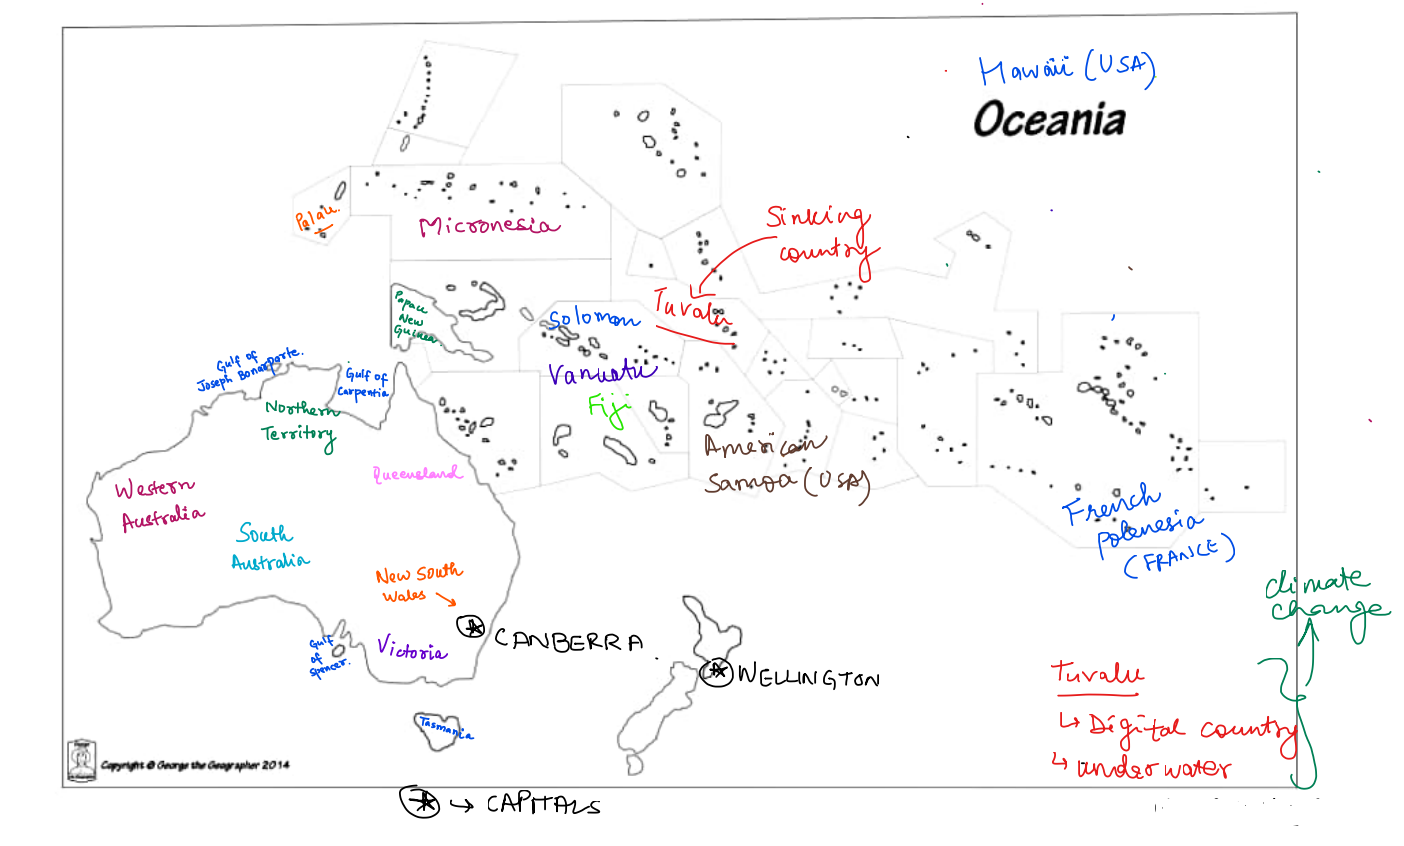 Hawaii (USA)
Oceania
Palau
Micronesia
Sinking
country
Papau
New
Guinea
Solomon
Tuvalu
Vanuatu
Fiji
Gulf of
Joseph Bonarporte.
Gulf of
Carpentia
Northern
Territory
Queensland
American
Samoa (USA)
Western
Australia
South
Australia
French
Polenesia
(FRANCE)
New South
Wales
climate
change
CANBERRA
Gulf
of
Spencer.
Victoria
WELLINGTON
Tuvalu
↳ Digital country
↳ underwater
Tasmania
Copyright © George the Geographer 2014
→ CAPITALS